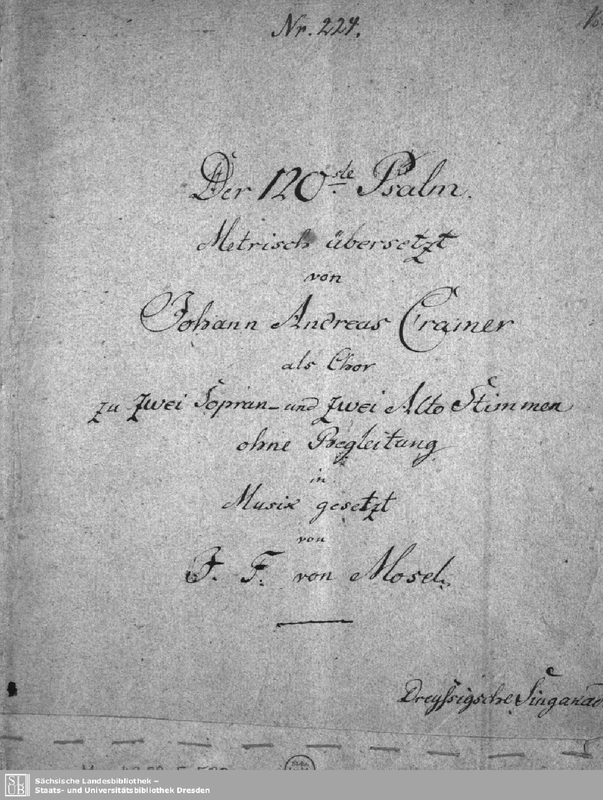 Nr. 224.
Der 120ste Psalm.
Metrisch übersetzt
von
Johann Andreas Cramer
als Chor
zu zwei Sopran- und zwei Alto Stimmen
ohne Begleitung
in
Musik gesetzt
von
J. F. von Mosel.
Dreyssigsche Singakad
SLUB
Sächsische Landesbibliothek –
Staats- und Universitätsbibliothek Dresden